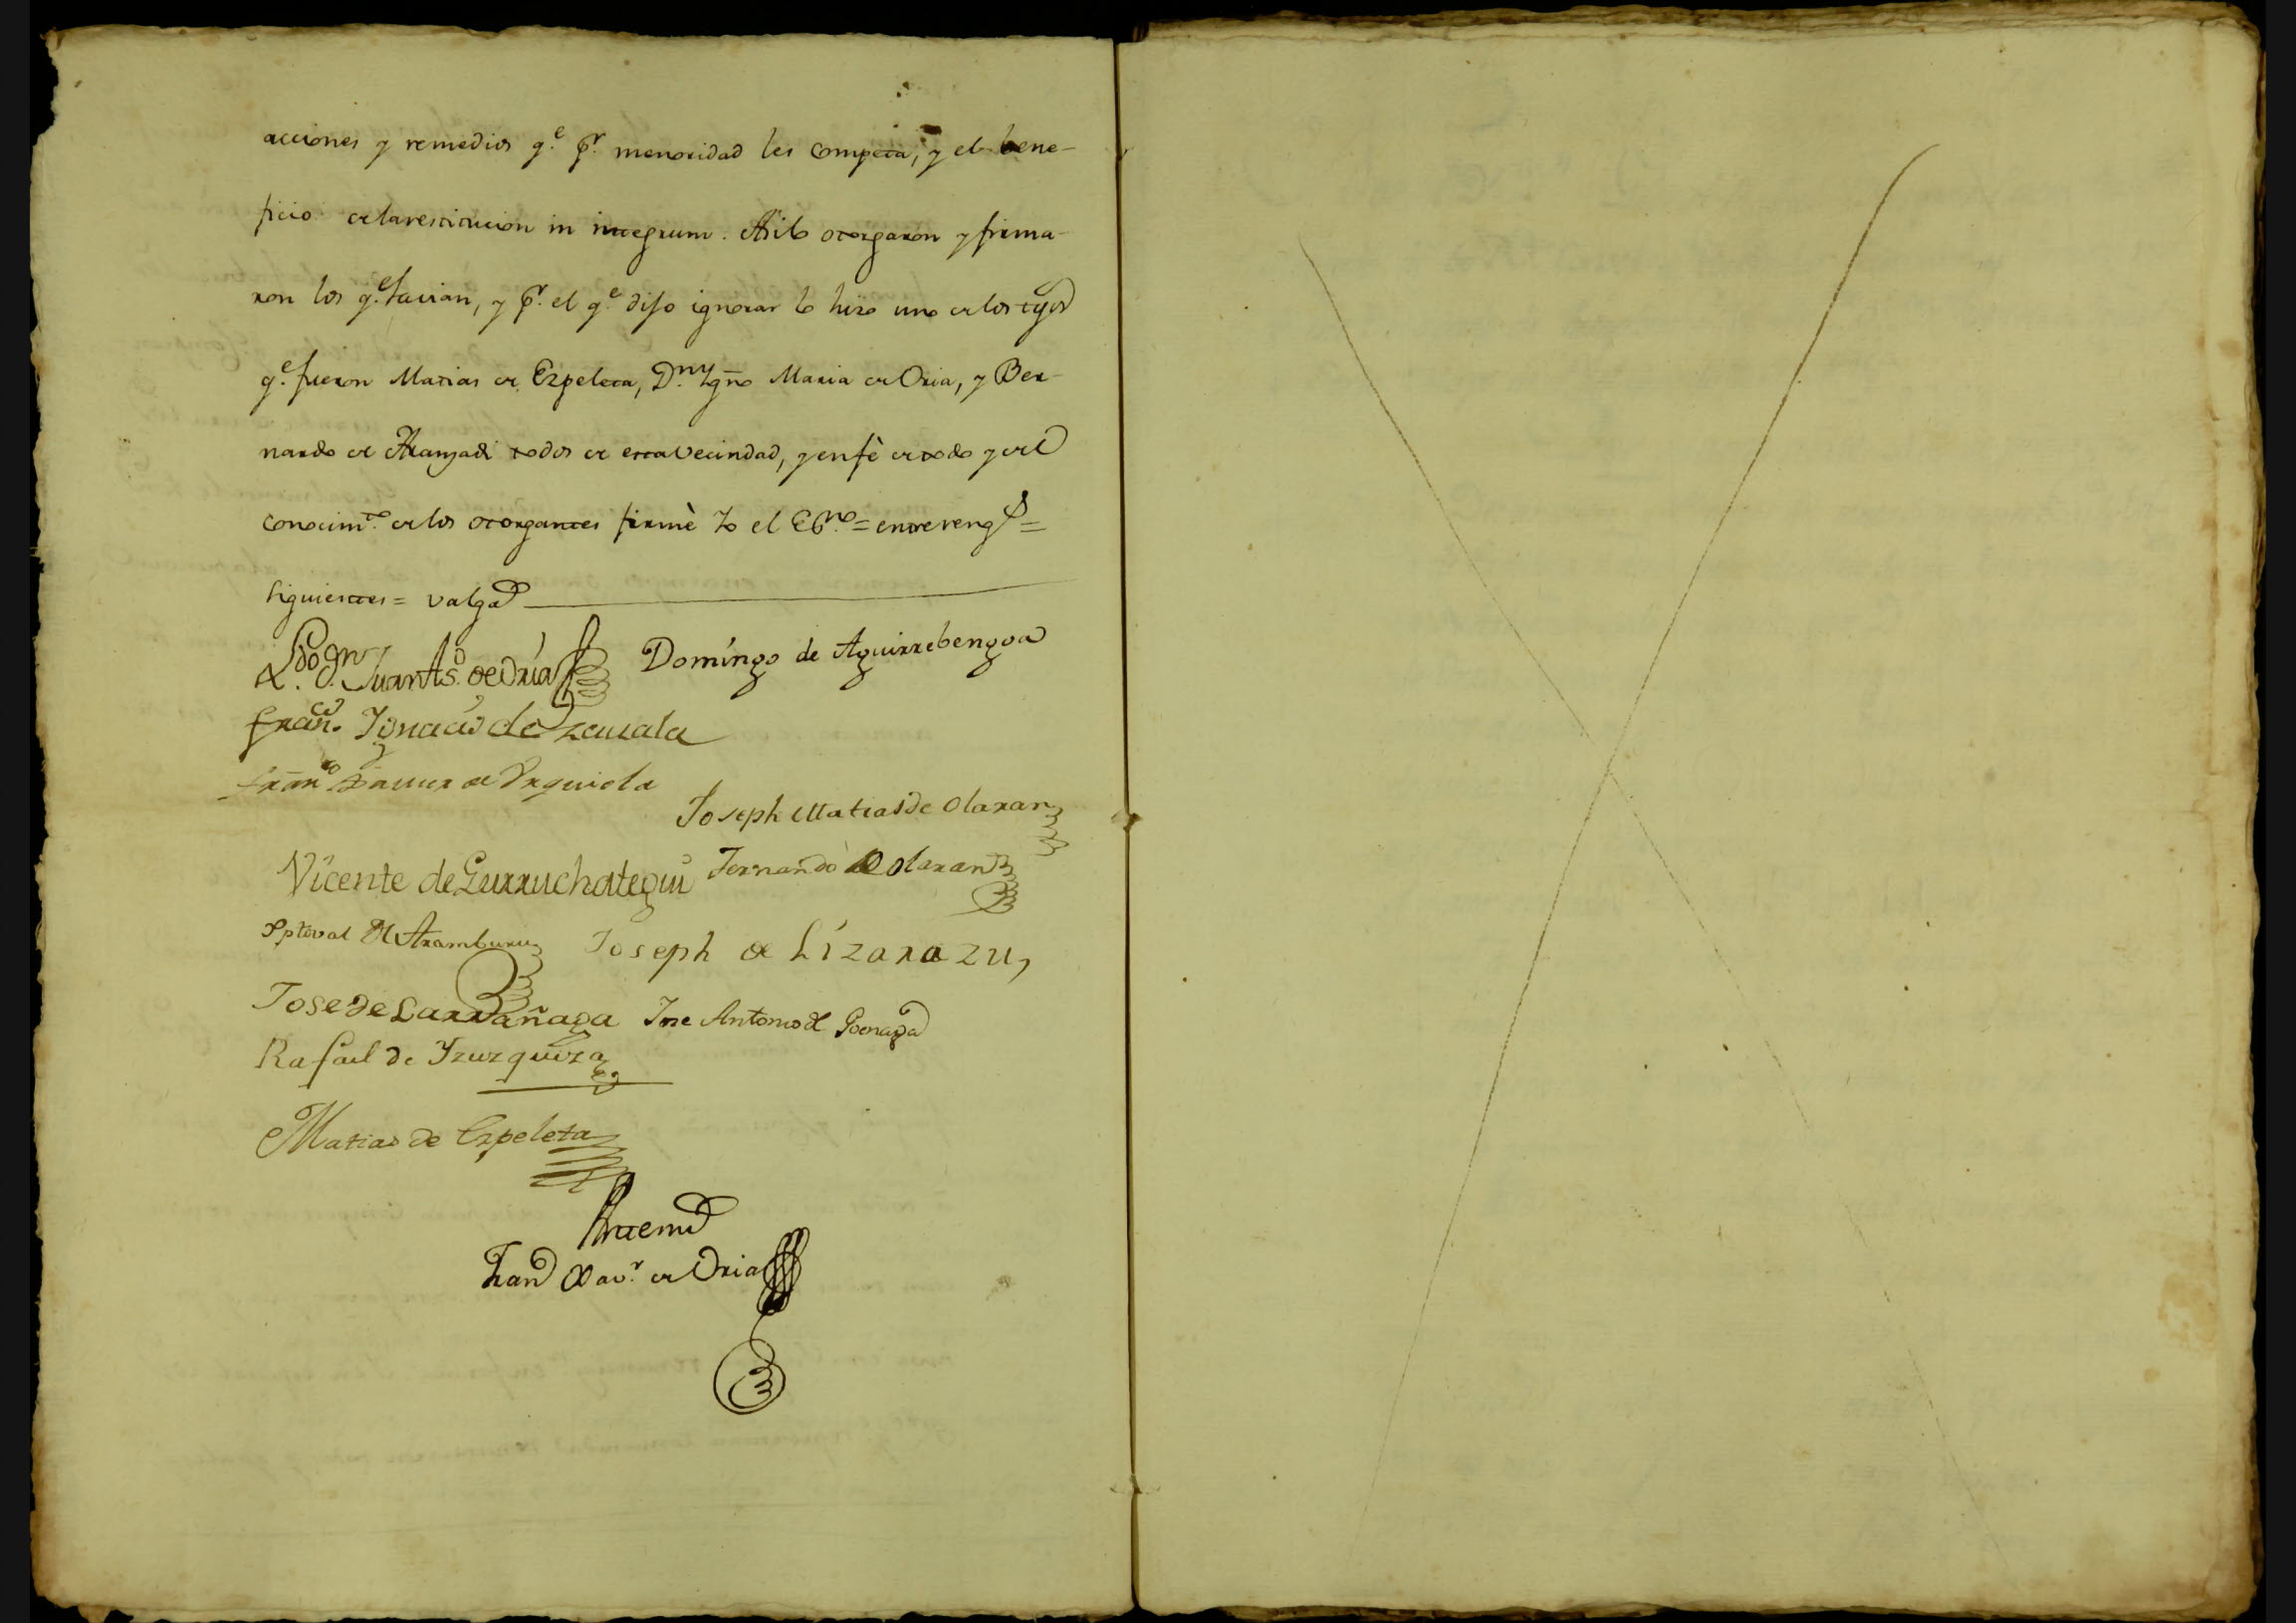 acciones y remedios q.e p.r menoridad les competa, y el bene-
ficio de la restitucion in integrum. Asi lo otorgaron y firma-
ron los q.e savian, y p.r el q.e dijo ignorar lo hizo uno de los tgos
q.e fueron Matias de Ezpeleta, D.n Ygn.o Maria de Oria, y Ber-
nardo de Aranzadi todos de esta vecindad, y en fè de todo y del
conocim.to de los otorgantes firmè Yo el Es.no = entrereng.s =
siguientes = valga
L.do D.n Juan As.o de Oria
Domíngo de Aguirrebengoa
Fran.co Ignacio de Zauala
Fran.co Xauier de Vrquiola
Joseph Matias de Olaran
Vicente de Gurruchategui
Fernando de Olaran
Xptoval de Aramburu
Joseph de Lizarazu
Jose de Larrañaga
Jose Antonio de Goenaga
Rafael de Yzuzquiza
Matias de Ezpeleta
Ante mi
Fran.co Xav.r de Oria